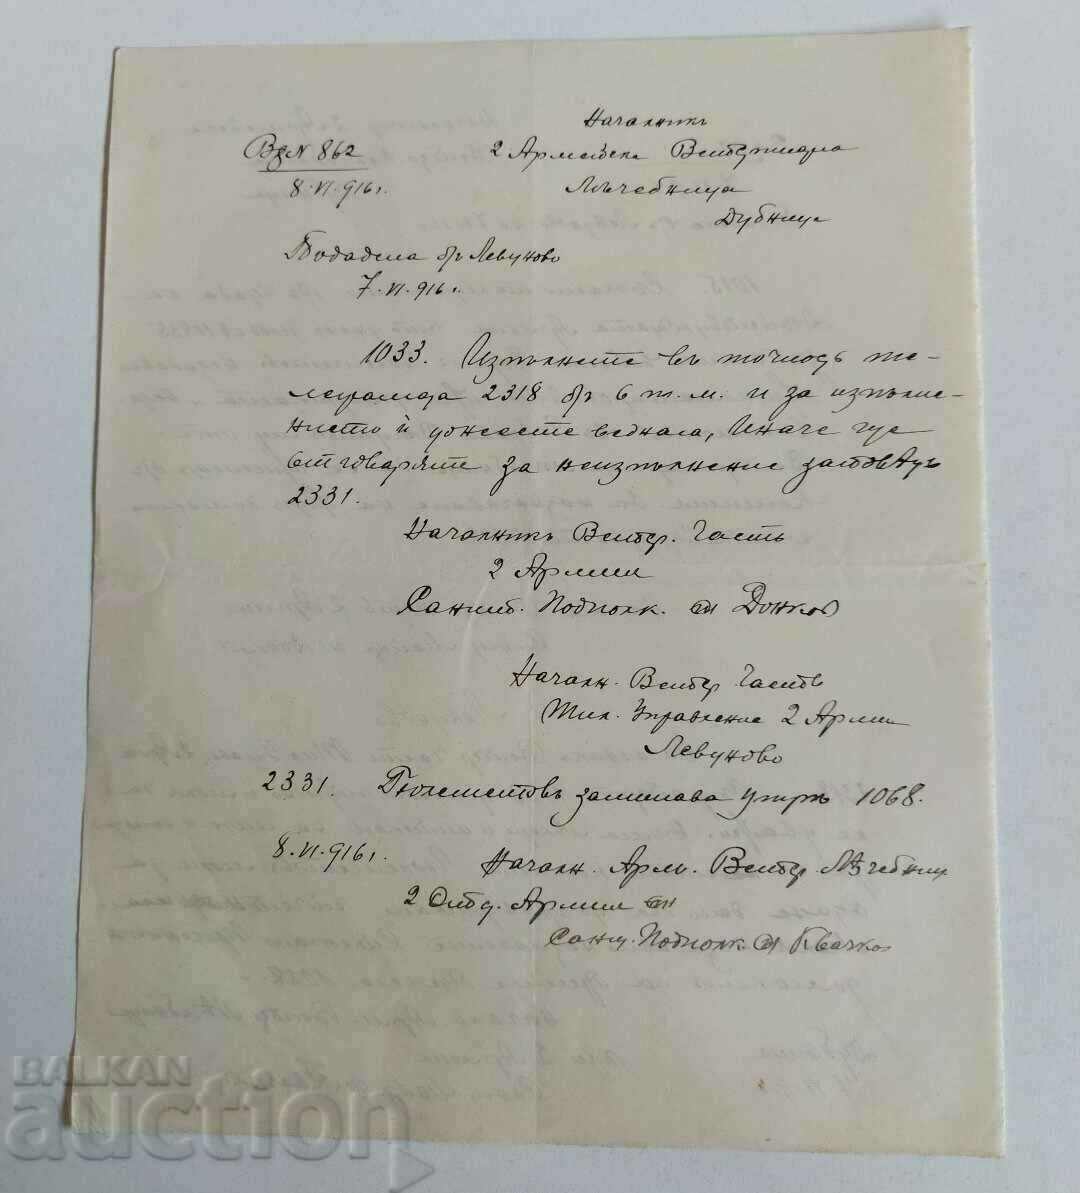 Началникъ
Вх № 862
2 Армейска Ветеринарна
8.VI.916 г.
Лѣчебница
Дубница
Подадена въ Левуново
7.VI.916 г.
1033. Изпълнете въ точность те-
леграмата 2318 отъ 6 т.м. и за изпълне-
нието ѝ донесете веднага, иначе ще
отговаряте за неизпълнение заповѣдь
2331.
Началникъ Ветер. Часть
2 Армия
Санит. Подполк. (п) Донков
Началн. Ветер Часть
Тил. Управление 2 Армия
Левуново
2331. заминава утре 1068.
8.VI.916 г.
Началн. Арм. Ветер. Лѣчебниц
2 Отд. Армия
Санит. Подполк. (п) Квачков
BALKAN
auction